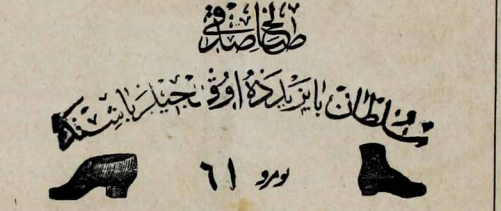 صالح صدقی
سلطان بایزیدده اوقجیلر باشنده
نومرو ٦١